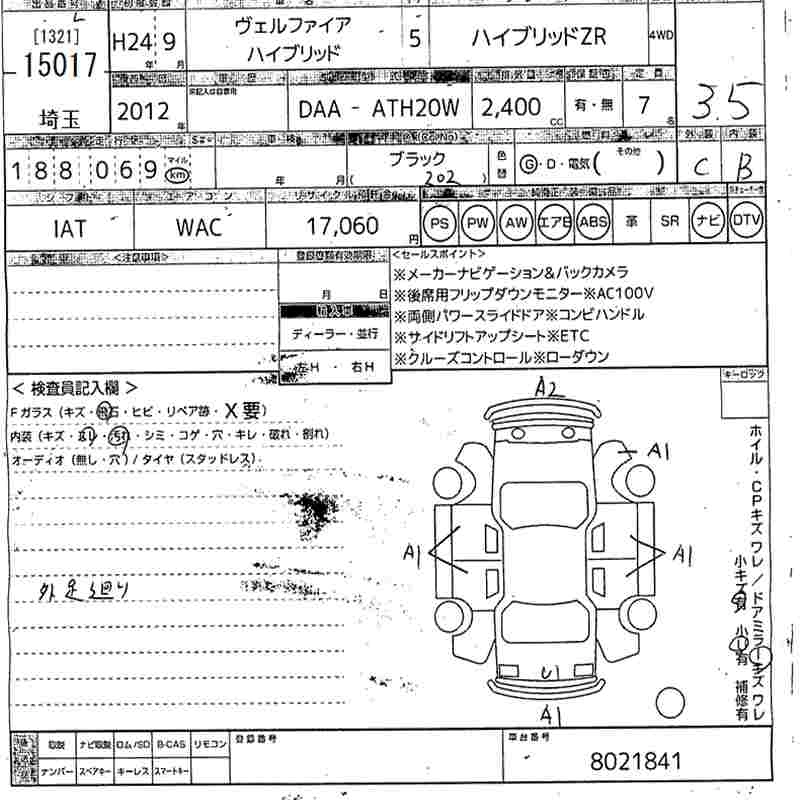 [1321]
15017
埼玉
H24 年 9 月
ヴェルファイア
ハイブリッド
5
ハイブリッドZR
4WD
2012 年
DAA - ATH20W
2,400 cc
有・無
7 名
3.5
188,069 マイル km
年 月
ブラック
( 202 )
色替
G・D・電気( その他 )
外装 内装
C B
シフト
エアコン
リサイクル預託金
IAT
WAC
17,060 円
PS PW AW エアB ABS 革 SR ナビ DTV
<注意事項>
登録書類有効期限
月 日
輸入車
ディーラー・並行
左H ・ 右H
<セールスポイント>
※メーカーナビゲーション&バックカメラ
※後席用フリップダウンモニター※AC100V
※両側パワースライドドア※コンビハンドル
※サイドリフトアップシート※ETC
※クルーズコントロール※ローダウン
< 検査員記入欄 >
Fガラス (キズ・飛石・ヒビ・リペア跡・X要)
内装 (キズ・汚れ・シミ・コゲ・穴・キレ・破れ・割れ)
オーディオ (無し・穴) / タイヤ (スタッドレス)
外足廻り
キーロック
A2
A1
A1
A1
U1
A1
ホイル・CPキズワレ/ドアミラーキズワレ
小キズ有 小U有 補修有
取説 ナビ取説 ロム/SD B-CAS リモコン
ナンバー スペアキー キーレス スマートキー
登録番号
車台番号
8021841